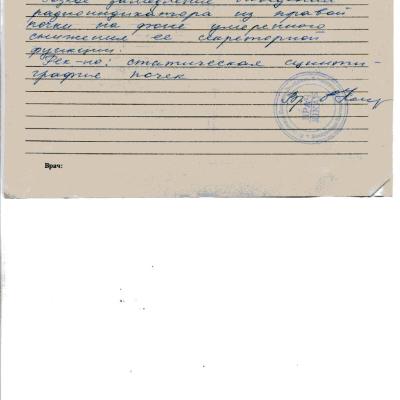 Резкое замедление выведения
радиоиндикатора из правой
почки на фоне умеренного
снижения ее секреторной
функции.
Рек-но: статическая сцинти-
графия почек
Врач: